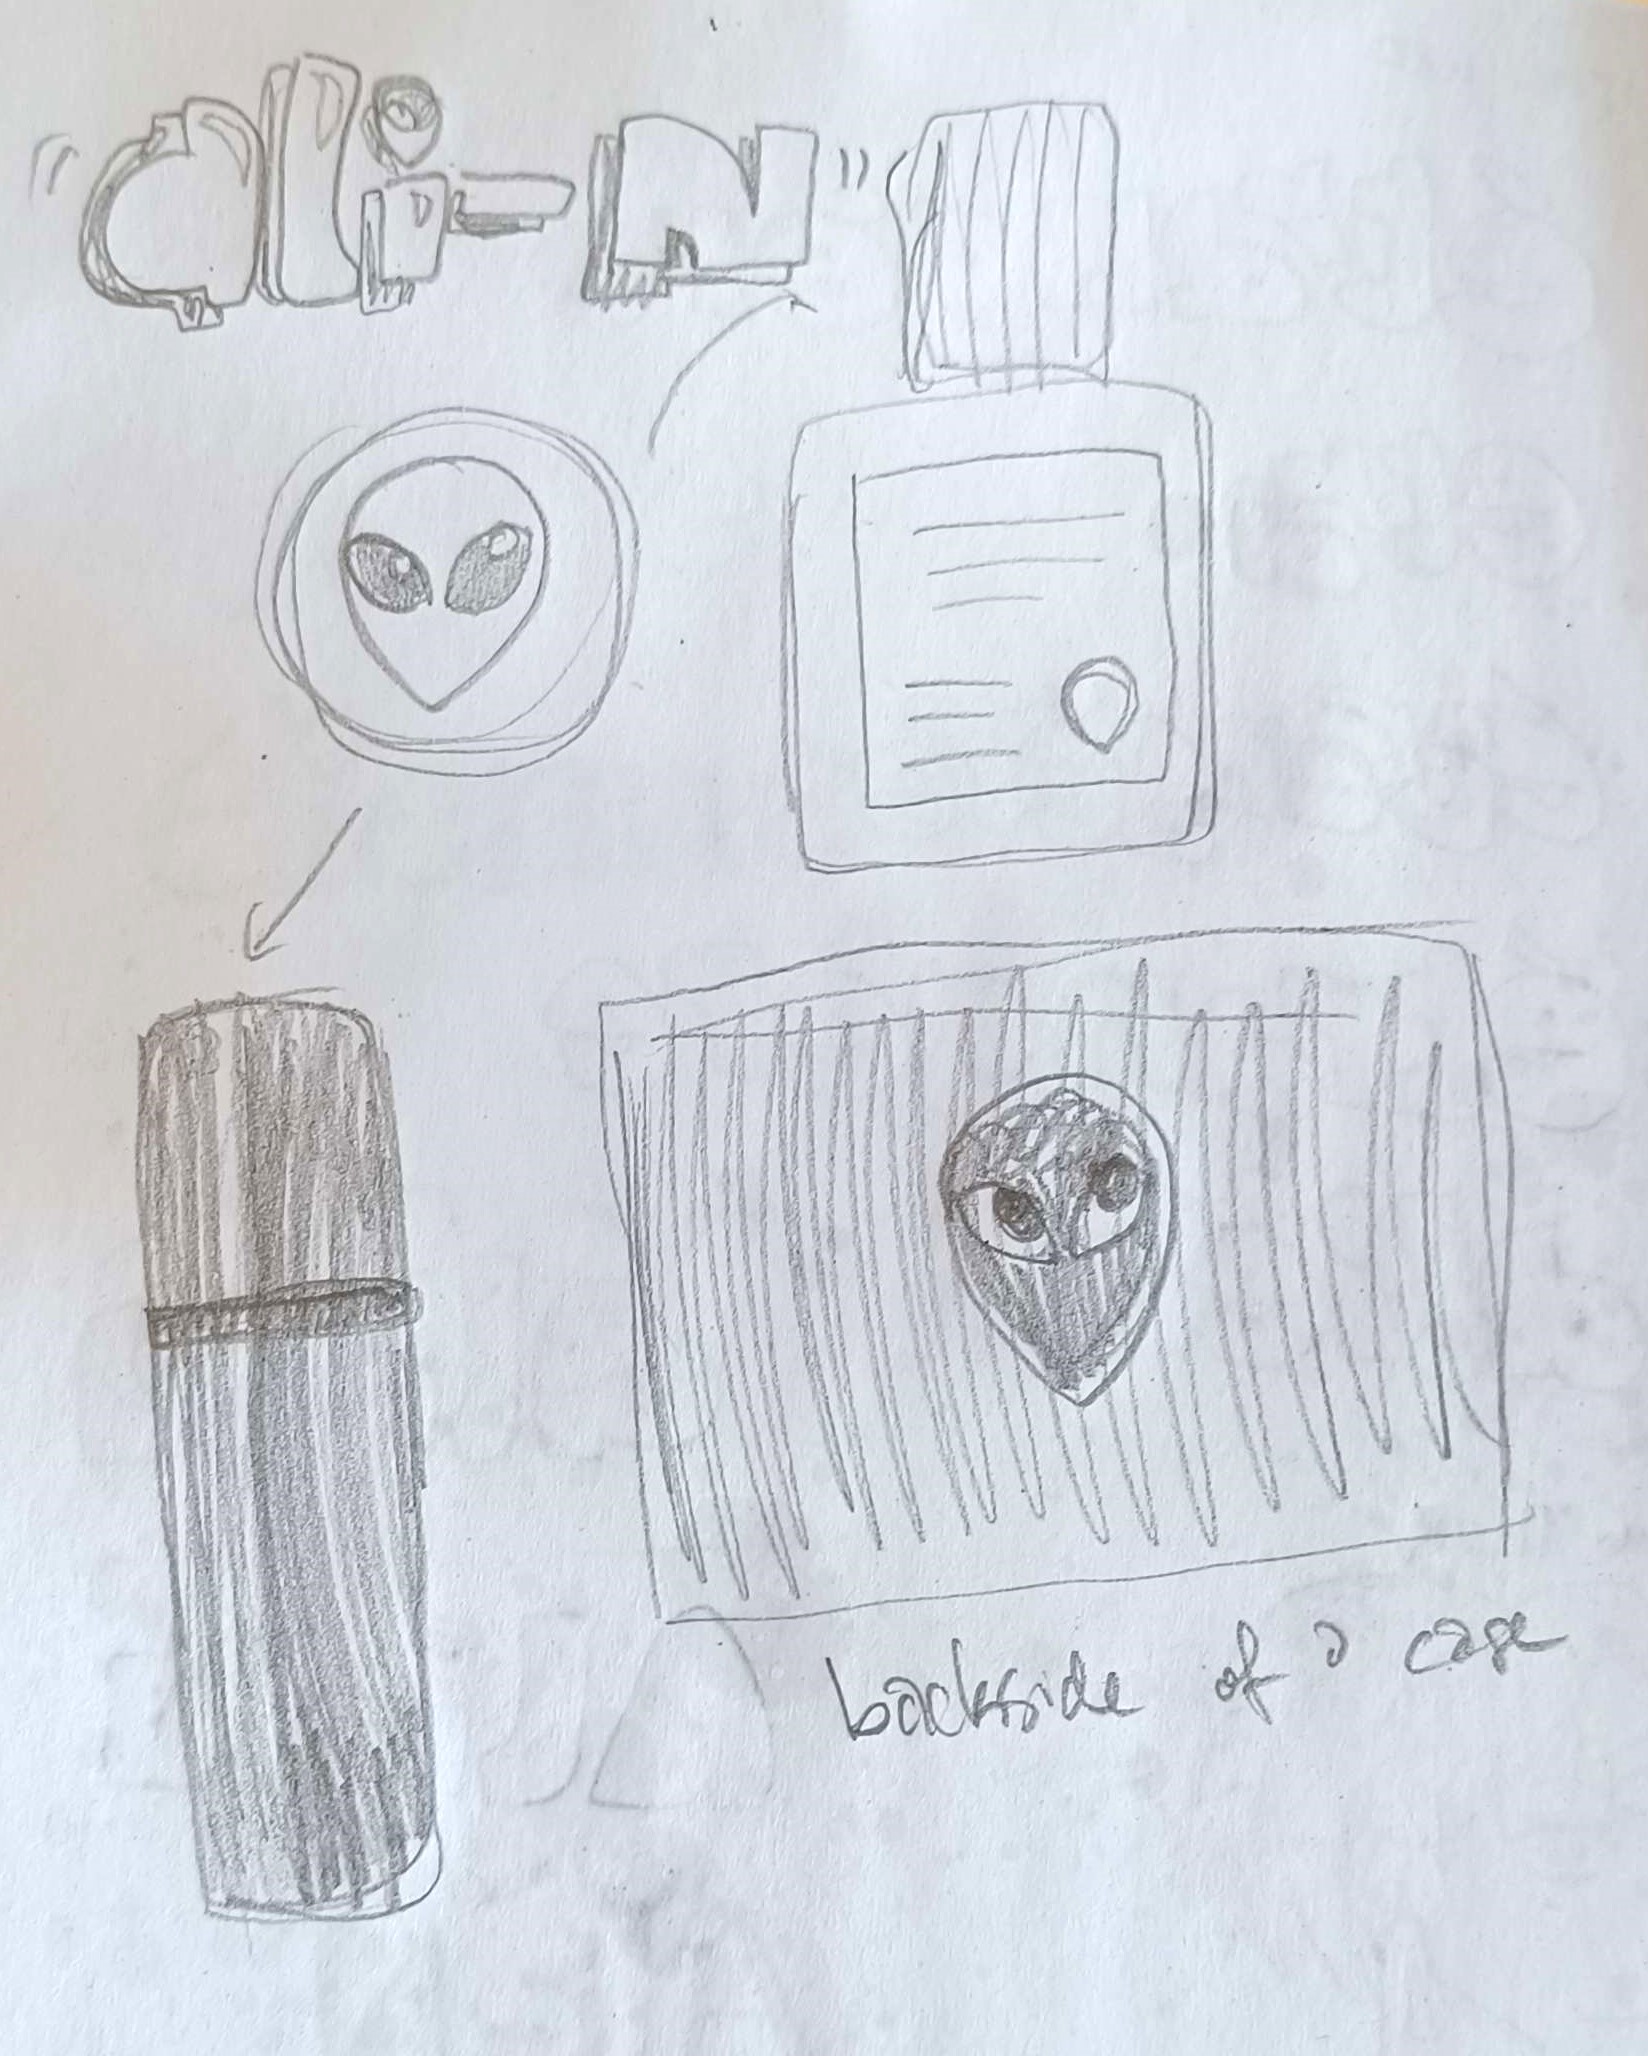 "ali-N"
backside of a case